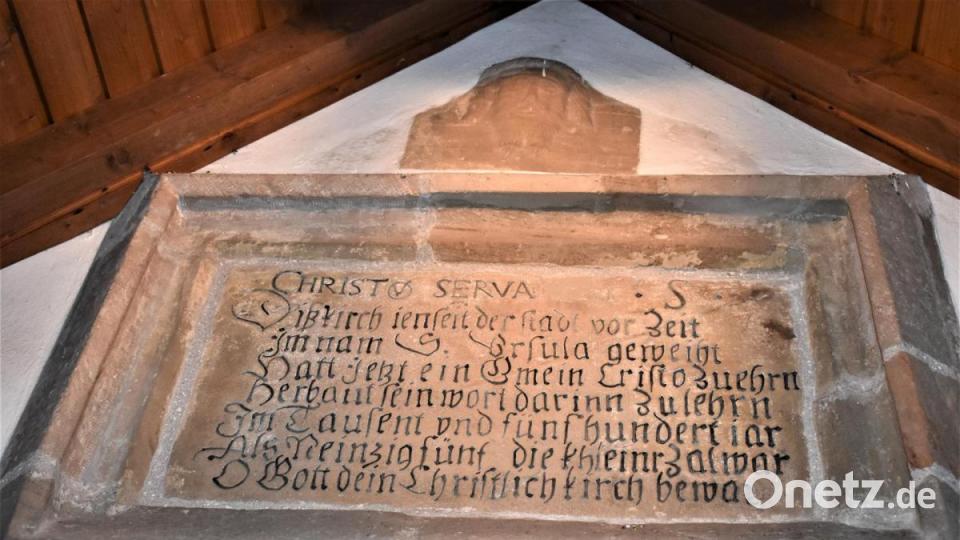 CHRISTO SERVATORI S.
Dißkirch ienseit der stadt vor Zeit
Im nam S. Vrsula geweiht
Hatt Jetzt ein Gmein Cristo Zuehrn
Herbaut sein wort darinn Zulehrn
Im Tausent vnd fünf hundert iar
Als Neinzig fünf die khleinr Zal war
O Gott dein Christlich kirch bewar
Onetz.de